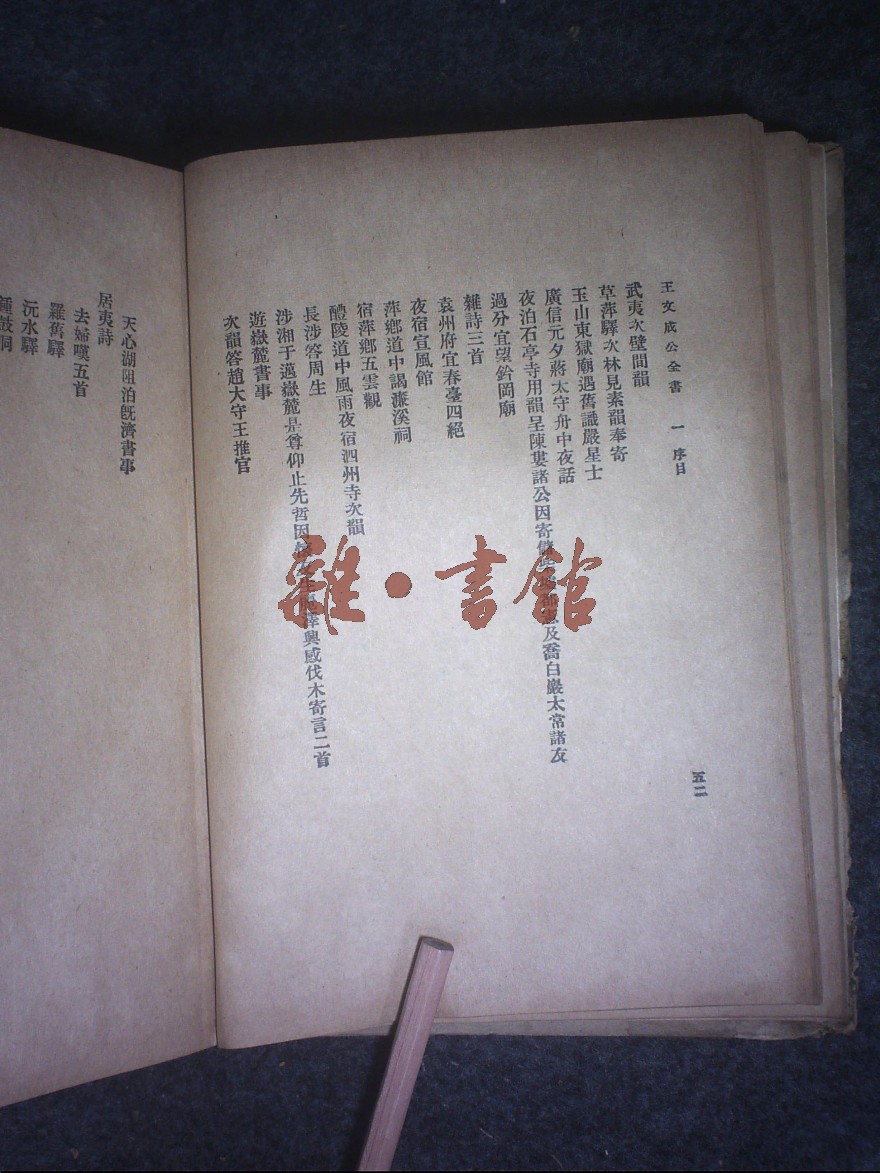 王文成公全書 一 序目
五二
武夷次壁間韻
草萍驛次林見素韻奉寄
玉山東獄廟遇舊識嚴星士
廣信元夕蔣太守舟中夜話
夜泊石亭寺用韻呈陳婁諸公因寄儲 及喬白巖太常諸友
過分宜望鈐岡廟
雜詩三首
袁州府宜春臺四絕
夜宿宣風館
萍鄉道中謁濂溪祠
宿萍鄉五雲觀
醴陵道中風雨夜宿泗州寺次韻
長沙答周生
涉湘于邁嶽麓是尊仰止先哲因 澤興感伐木寄言二首
遊嶽麓書事
次韻答趙大守王推官
天心湖阻泊旣濟書事
居夷詩
去婦嘆五首
羅舊驛
沅水驛
鍾鼓洞
雜·書館